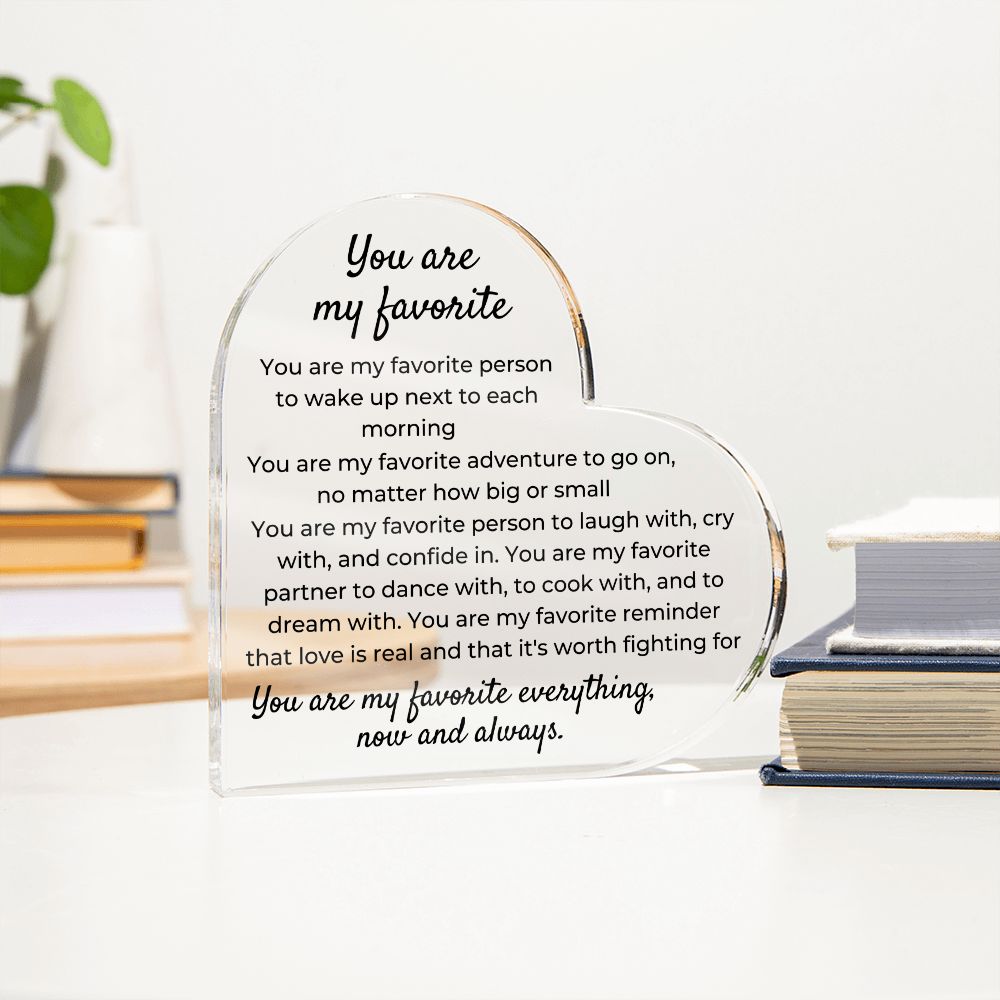 You are
my favorite
You are my favorite person
to wake up next to each
morning
You are my favorite adventure to go on,
no matter how big or small
You are my favorite person to laugh with, cry
with, and confide in. You are my favorite
partner to dance with, to cook with, and to
dream with. You are my favorite reminder
that love is real and that it's worth fighting for
You are my favorite everything,
now and always.